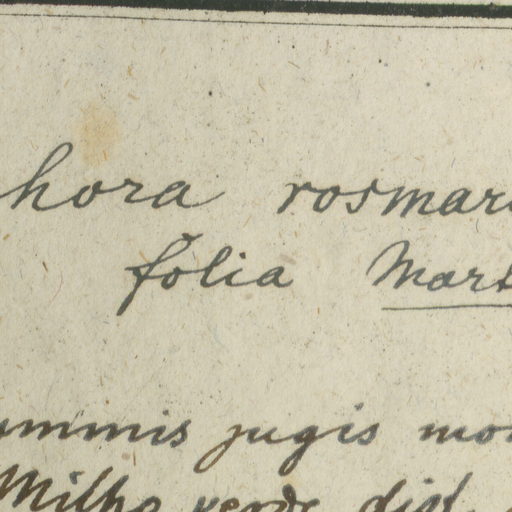 hora rosmari
folia Mart
ummis jugis mon
Milho verde dist.